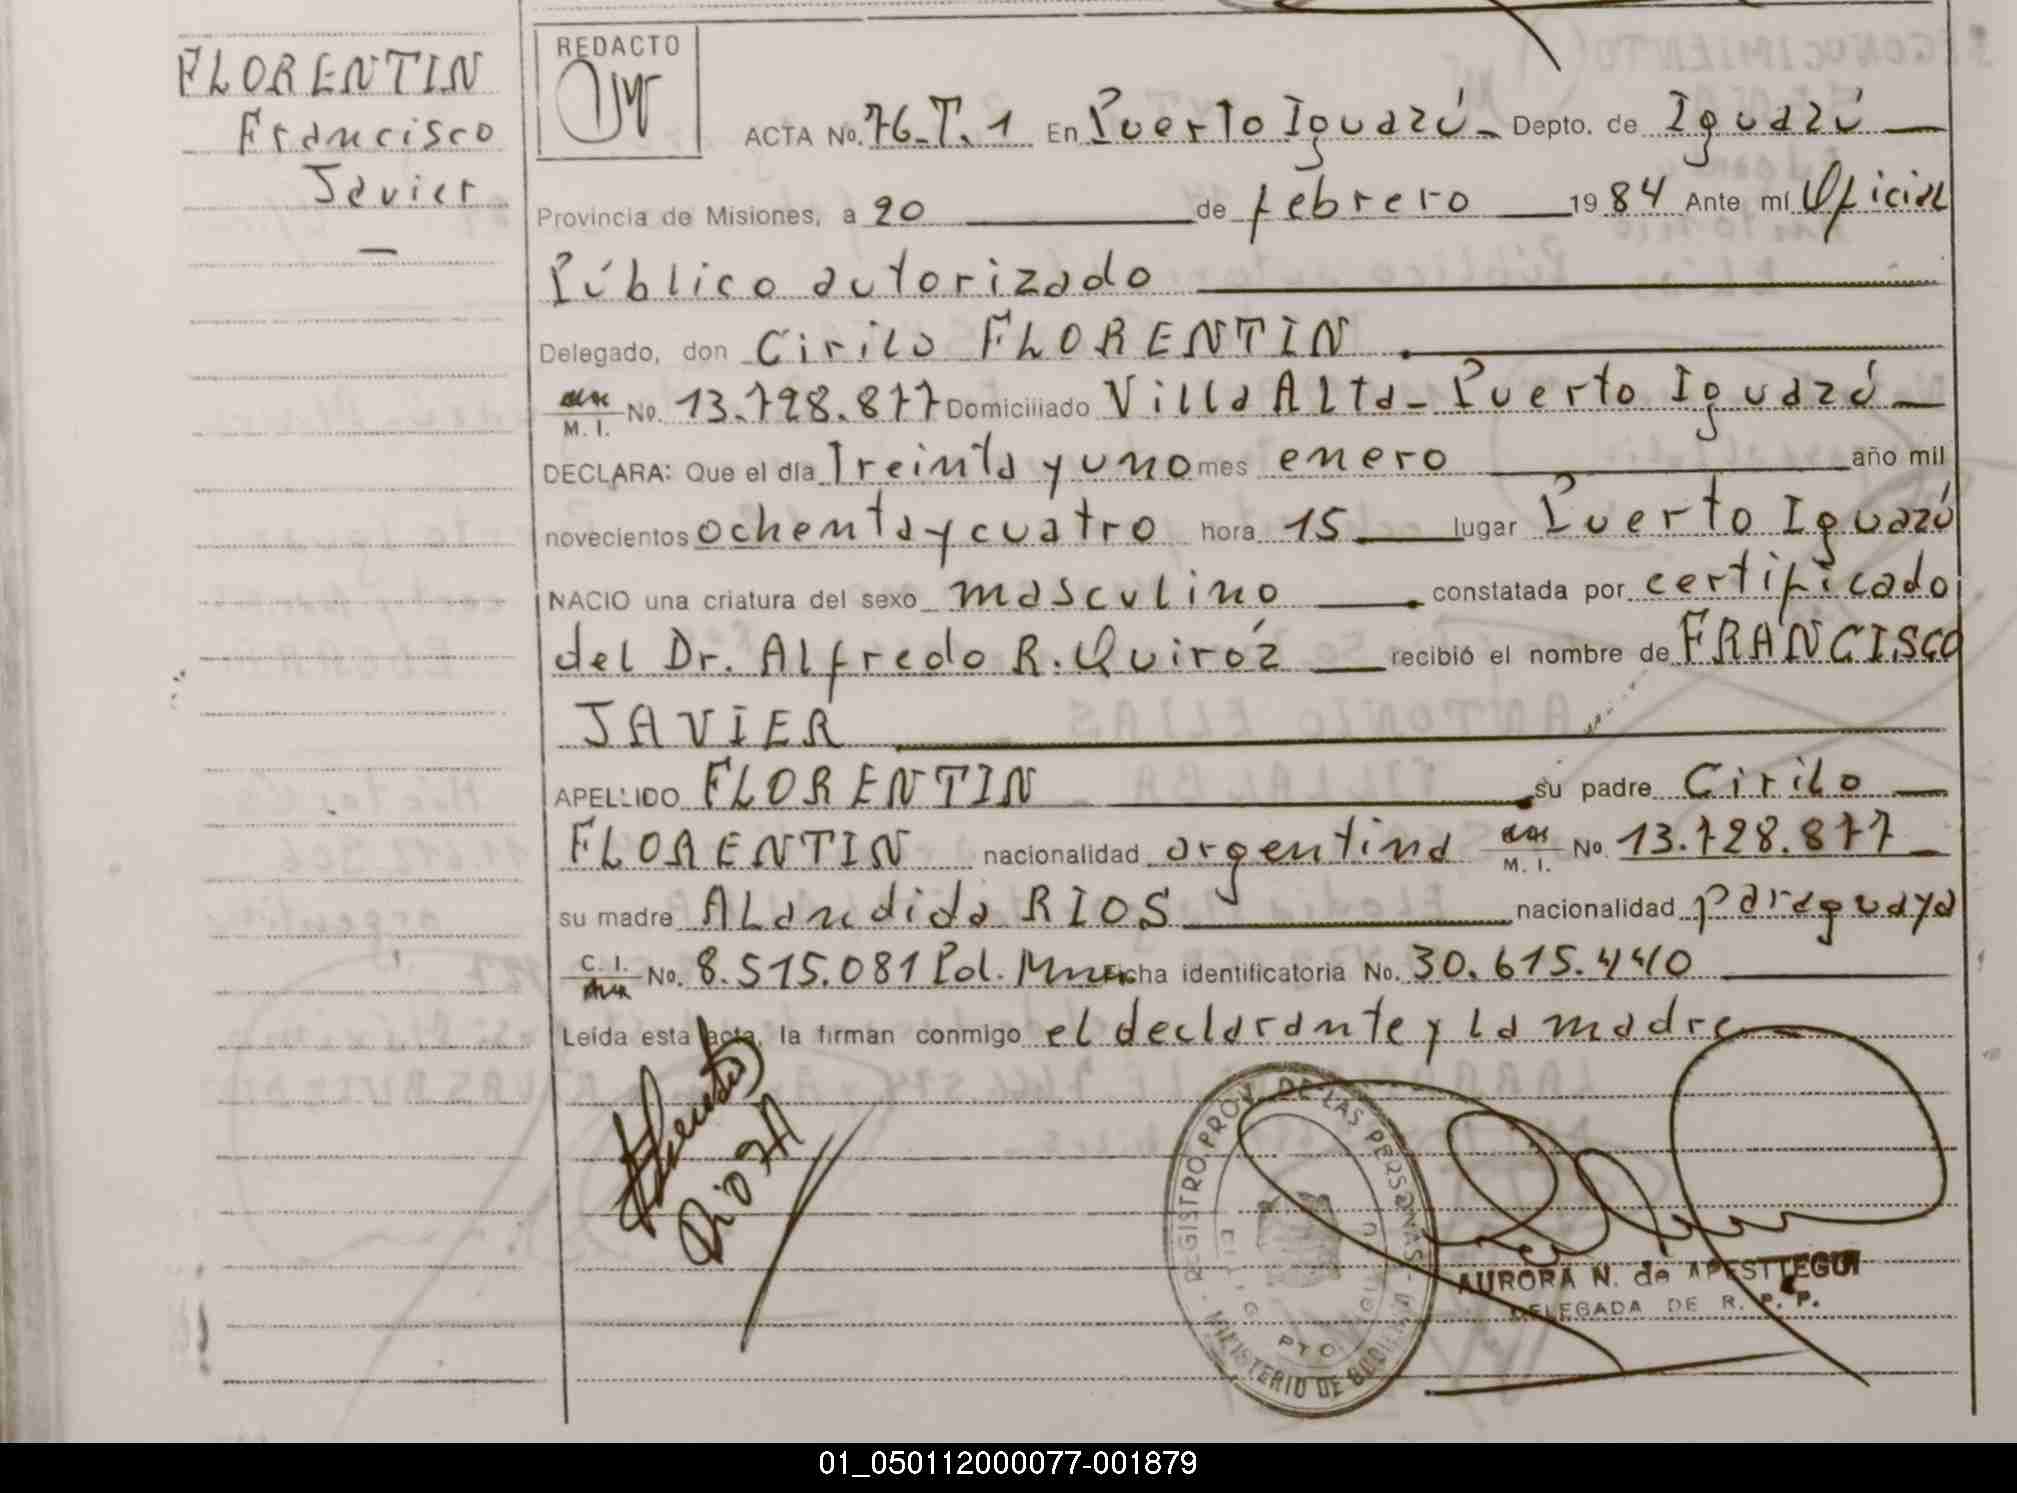 FLORENTIN
Francisco
Javier
—
REDACTO
ACTA No. 76-T.1 En Puerto Iguazú- Depto. de Iguazú
Provincia de Misiones, a 20 de febrero 1984 Ante mí Oficial
Público autorizado
Delegado, don Cirilo FLORENTIN
M. I. No. 13.728.877 Domiciliado Villa Alta- Puerto Iguazú
DECLARA: Que el día Treinta y uno mes enero año mil
novecientos ochenta y cuatro hora 15 lugar Puerto Iguazú
NACIO una criatura del sexo masculino constatada por certificado
del Dr. Alfredo R. Quiróz recibió el nombre de FRANCISCO
JAVIER
APELLIDO FLORENTIN su padre Cirilo
FLORENTIN nacionalidad argentina M. I. No. 13.728.877
su madre ALandida RIOS nacionalidad paraguaya
C. I. No. 8.515.081 Pol. Mnes. Ficha identificatoria No. 30.615.440
Leída esta acta, la firman conmigo el declarante y la madre
REGISTRO PROV. DE LAS PERSONAS - MINISTERIO DE GOBIERNO
PTO
AURORA N. de APESTTEGUI
DELEGADA DE R. P. P.
01_050112000077-001879